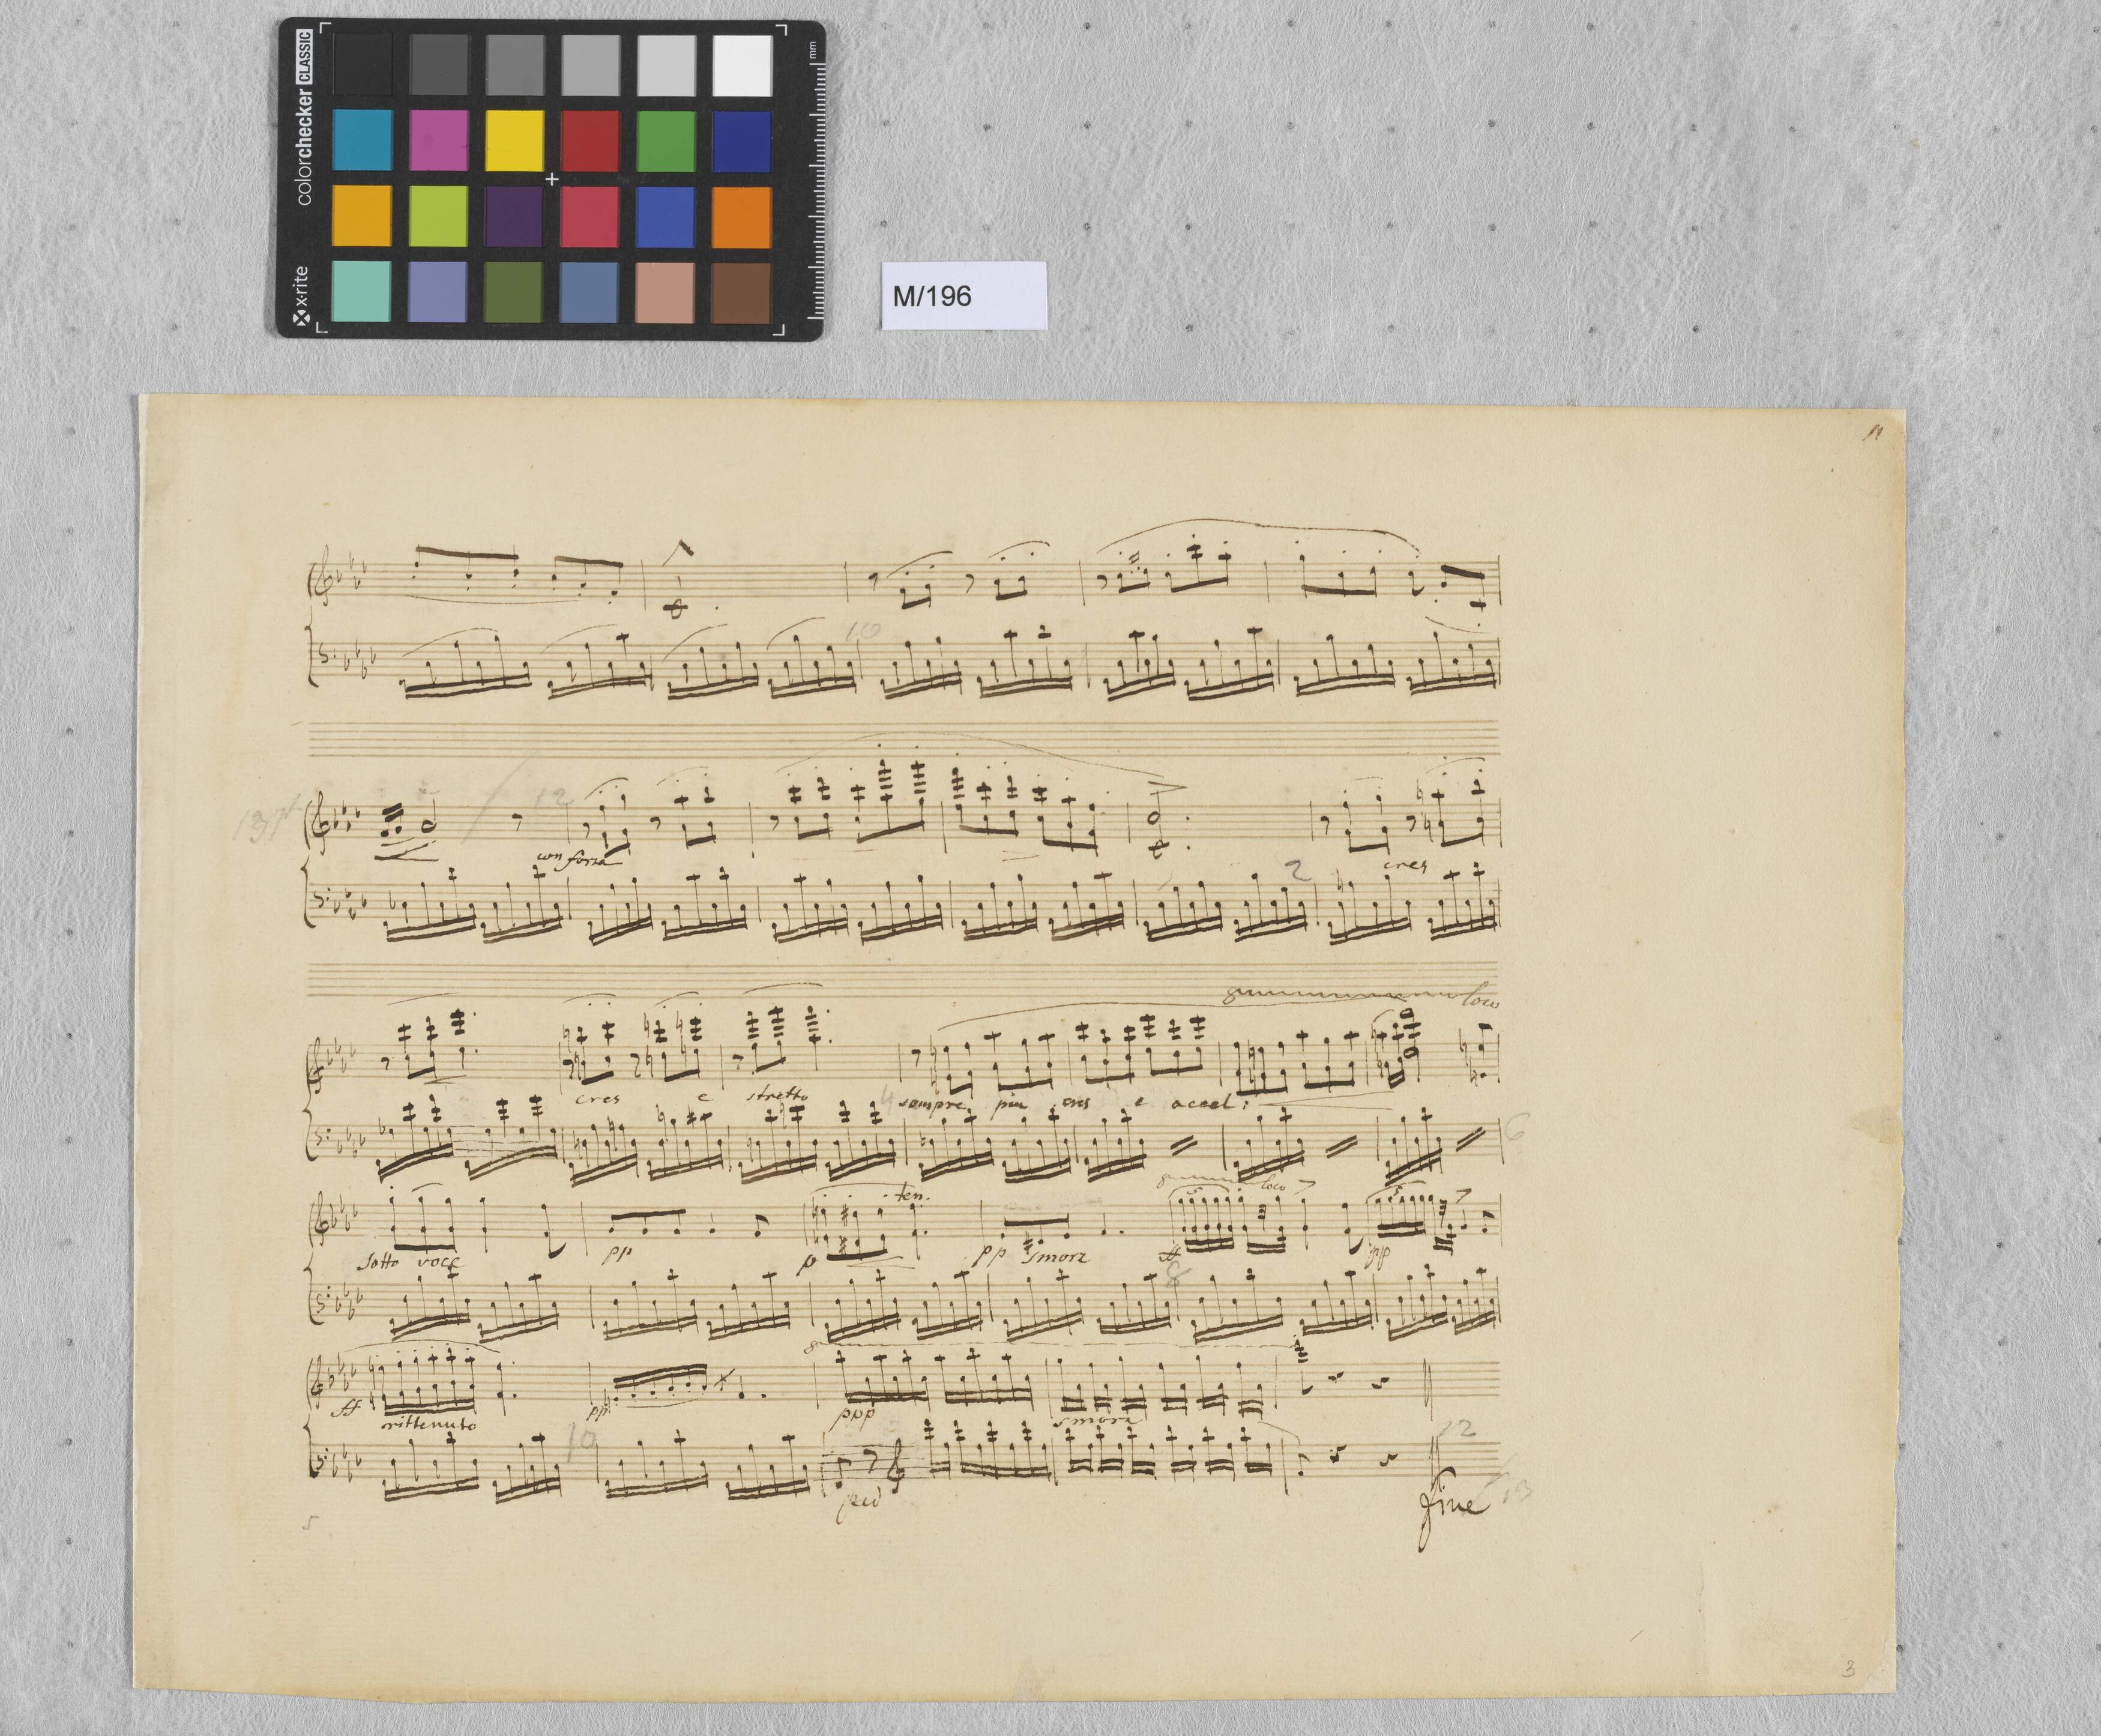 colorchecker CLASSIC
x·rite
mm
M/196
11
10
137
12
con forza
2
cres
8
loco
cres e stretto 4 sempre piu cres e accel:
6
8 loco
ten.
Sotto voce pp p pp smorz ff pp
8
8
ff rittenuto pp ppp smorz
10
12
ped
fine
13
3